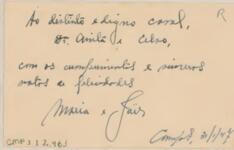 R
Ao distinto e digno casal,
Dr. Anita e Celso,
com os cumprimentos e sinceros
votos de felicidades
Maria e Jair
Campos,
CMP 1.1.2.